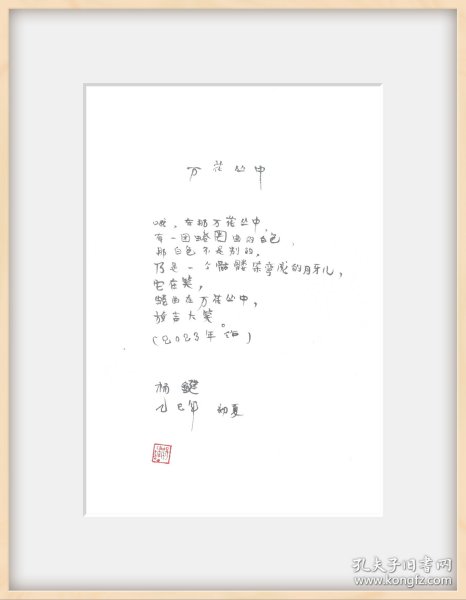 万花丛中
哦，在那万花丛中，
有一团蜷曲的白色，
那白色不是别的，
乃是一个骷髅架变成的月牙儿，
它在笑，
蜷曲在万花丛中，
放声大笑。
(2023年 )
杨键
乙巳年 初夏
孔夫子旧书网
www.kongfz.com